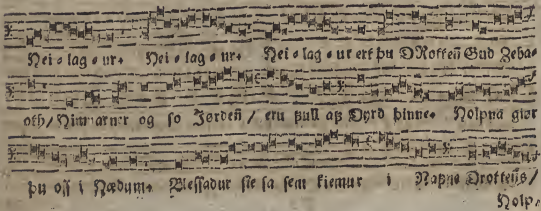 Hei-lag-ur. Hei-lag-ur. Hei-lag-ur ert þu DRotten Gud Zeba-
oth/ Himnarner og so Jørden/ eru full aff Dyrd þinne. Holpna giør
þu oss i Hædum. Blessadur sie sa sem kiemur i Naffne Drottens/
Holp-